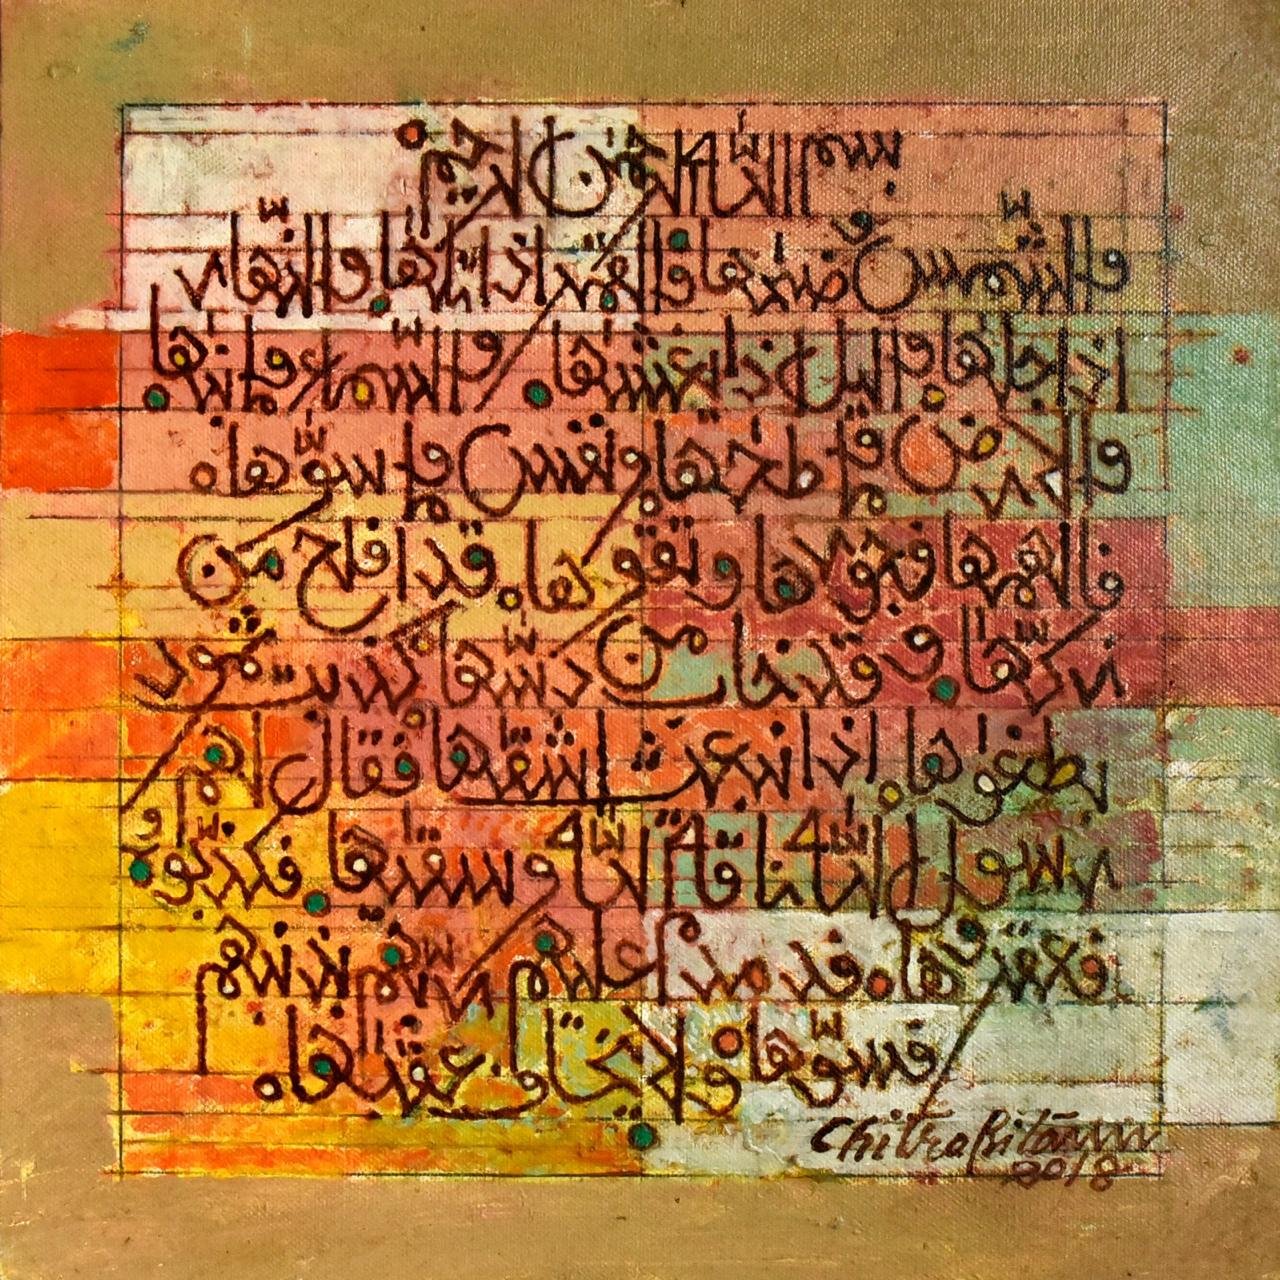 بسم الله الرحمن الرحيم
والشمس وضحها والقمر اذا تلها والنهار
اذا جلها واليل اذا يغشها والسماء وما بنها
والارض وما طحها ونفس وما سوها
فالهمها فجورها وتقوها قد افلح من
زكها وقد خاب من دسها كذبت ثمود
بطغوها اذ انبعث اشقها فقال لهم
رسول الله ناقة الله وسقيها فكذبوه
فعقروها فدمدم عليهم ربهم بذنبهم
فسوها ولا يخاف عقبها
ChitraRitánnn
2018